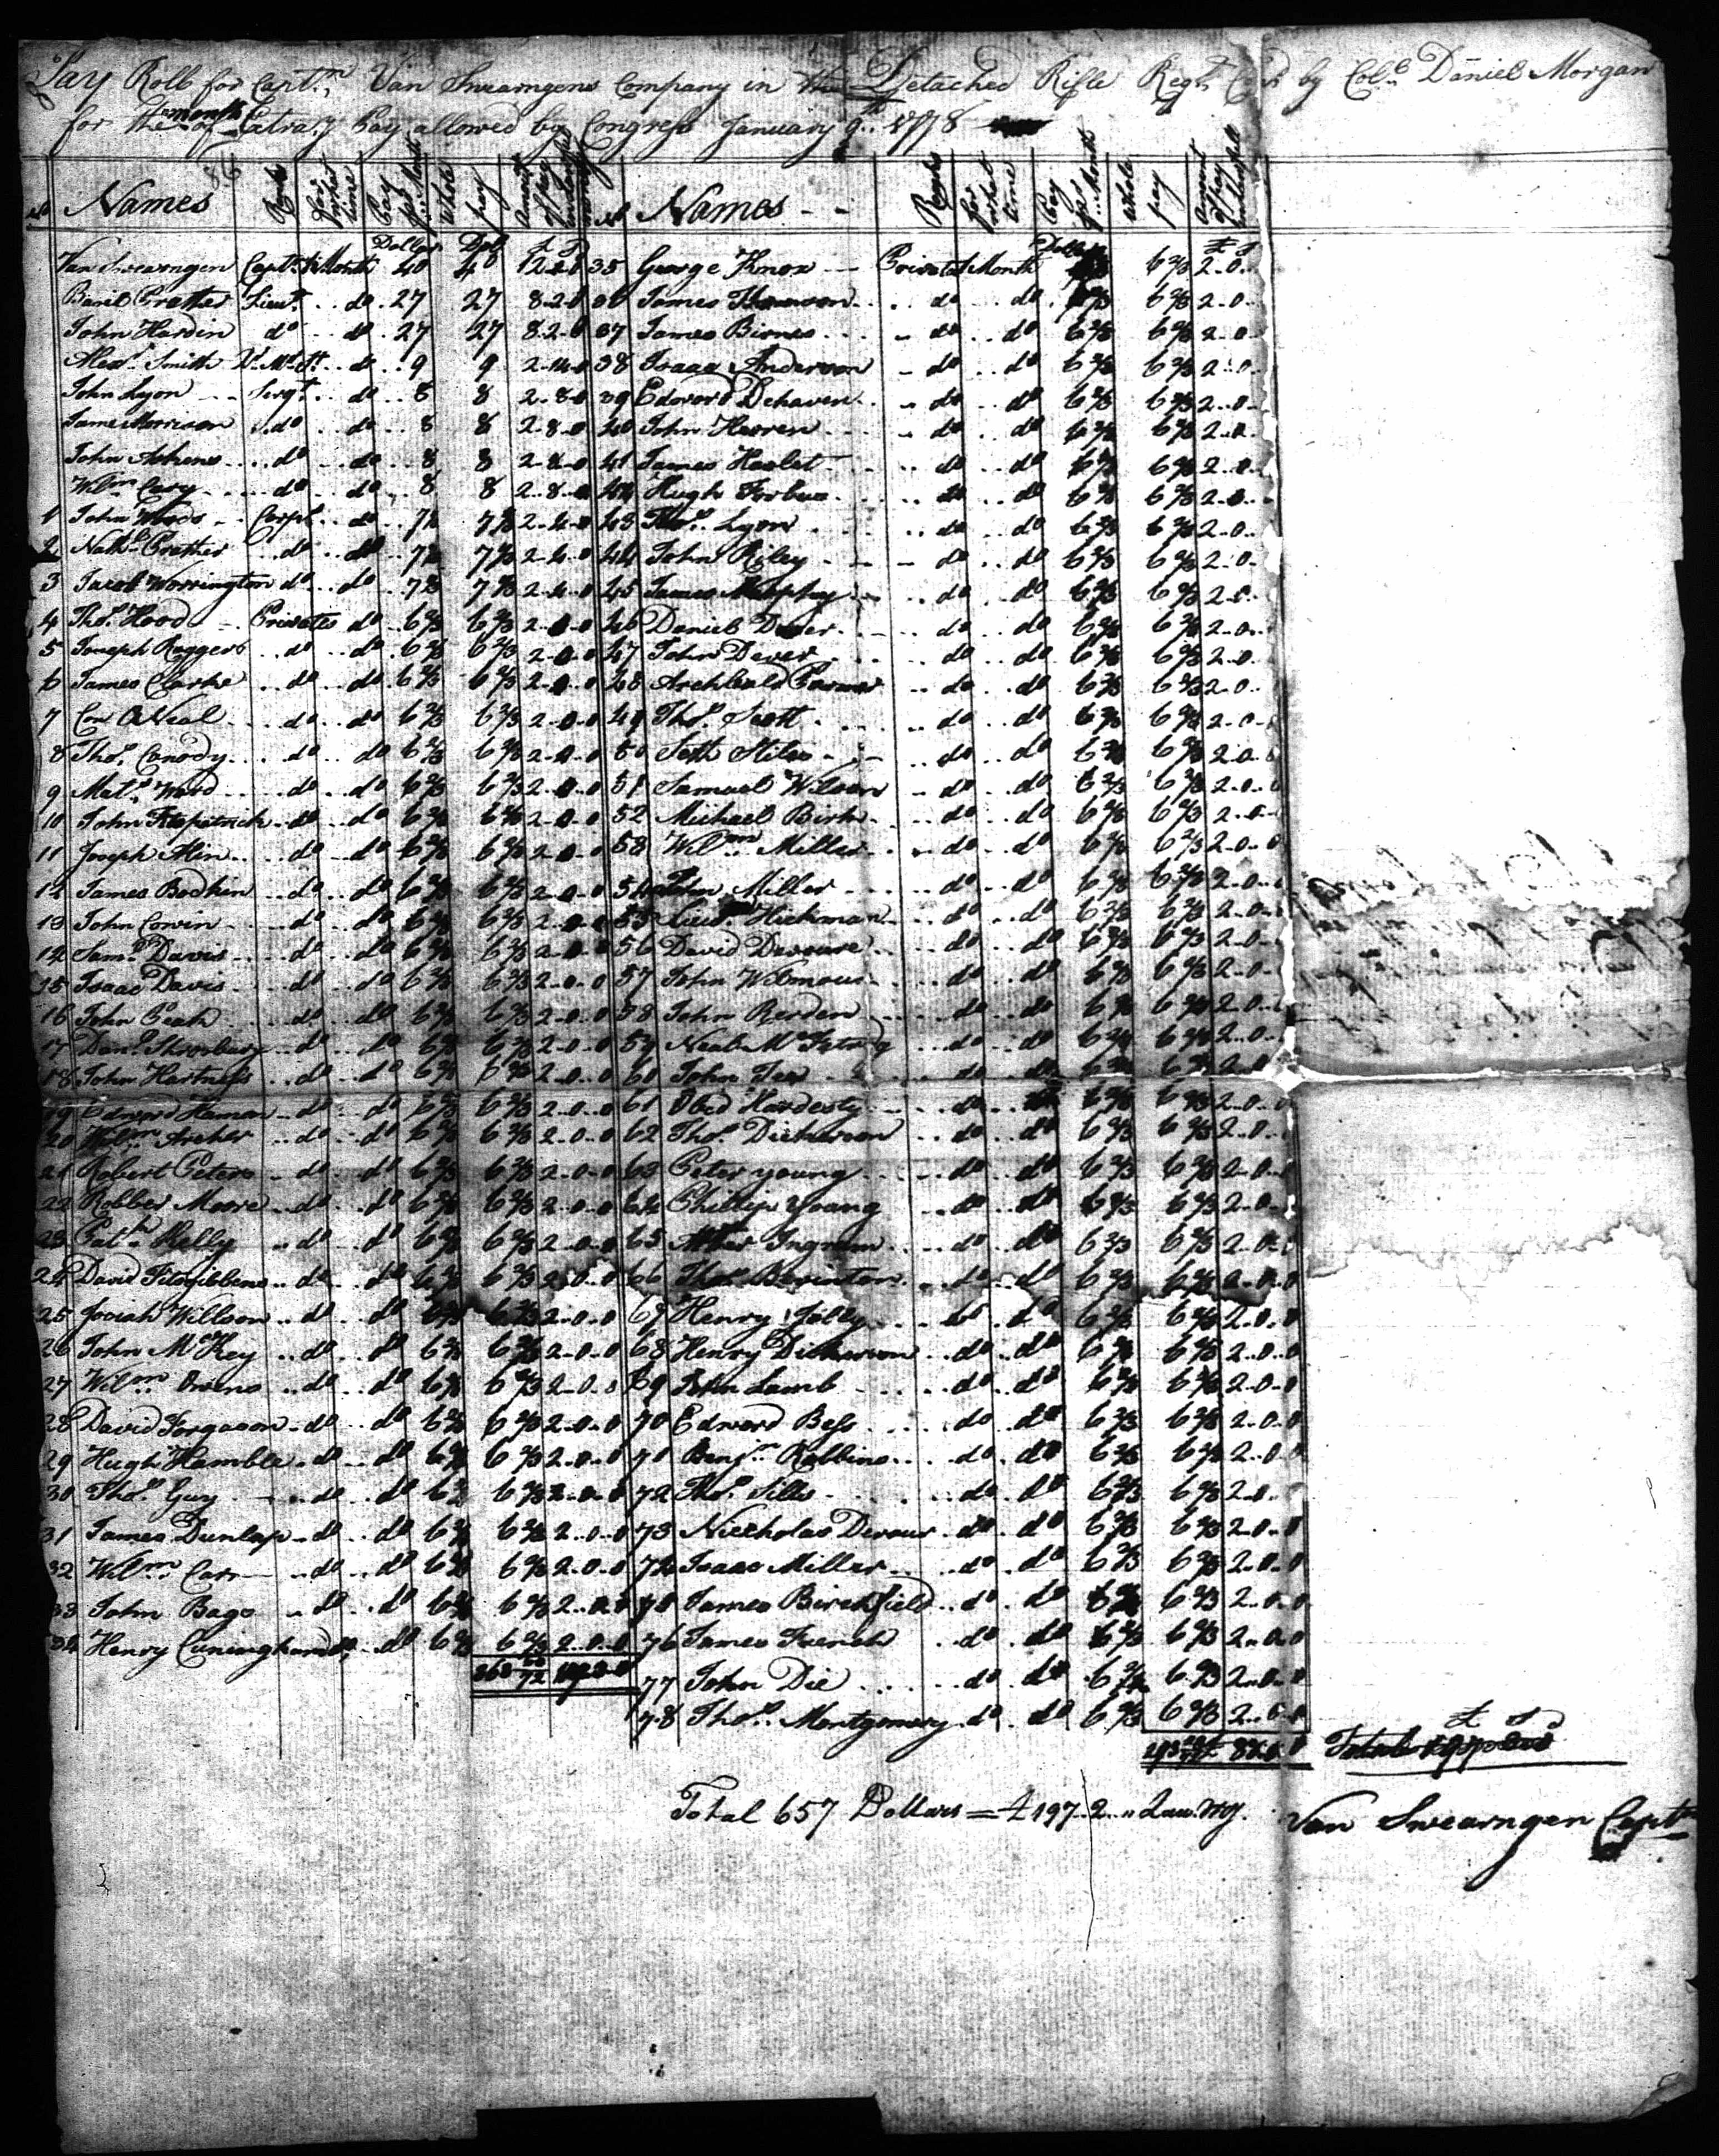 Pay Roll for Capt.n Van Swearngens Company in the Detached Rifle Regt Comd by Col.o Daniel Morgan
for the month of Extra.y Pay allowed by Congress January 9th 1778
No Names Rank for what time Pay per Month Whole pay Amount of pay No Names - - Ranks for what time Pay per Month whole pay Amount of pay
Dollars Dol £ S Dollars £ S
Van Swearngen Capt. 1 Month 40 40 12-0-0 35 George Knox -- Private 1 Month 6 2/3 2-0..
Baril Prather Lieu.t .. do . 27 27 8-2-0 36 James .. do .. do . 6 2/3 6 2/3 2-0
John Hardin do .. do . 27 27 8-2-0 37 James Birnes ... do .. do 6 2/3 6 2/3 2-0
Alex.r Smith do .. 9 9 2-14-0 38 Isaac Anderson - do .. do 6 2/3 6 2/3 2-0
John Lyon -- Serg.t .. do .. 8 8 2-8-0 39 Edward Dehaven .. do .. do 6 2/3 6 2/3 2-0
James Morrison do .. do .. 8 8 2-8-0 40 John Herren .. do .. do 6 2/3 6 2/3 2-0
John Athens ... do .. do .. 8 8 2-8-0 41 James Haslet .. do .. do 6 2/3 6 2/3 2-0
Wilm Cary ... do .. do .. 8 8 2-8-0 42 Hugh Forbus .. do .. do 6 2/3 6 2/3 2-0
1 John Woods - Corpl .. do .. 7 1/3 7 1/3 2-4-0 43 Tho.s Lyon .. do .. do 6 2/3 6 2/3 2-0
2 Nath.l Prather .. do .. do .. 7 1/3 7 1/3 2-4-0 44 John Riley - do .. do 6 2/3 6 2/3 2-0
3 Jacob Worrington do .. do . 7 1/3 7 1/3 2-4-0 45 James Murphy .. do .. do 6 2/3 6 2/3 2-0
4 Tho.s Hood - Privates do . 6 2/3 6 2/3 2-0-0 46 Daniel Dever .. do .. do 6 2/3 6 2/3 2-0
5 Joseph Roggers .. do .. do . 6 2/3 6 2/3 2-0-0 47 John Dever .. do .. do 6 2/3 6 2/3 2-0
6 James Clarke .. do .. do . 6 2/3 6 2/3 2-0-0 48 Archbald .. do .. do 6 2/3 6 2/3 2-0
7 Con ONeal .. do .. do 6 2/3 6 2/3 2-0-0 49 Tho.s Scott .. do .. do 6 2/3 6 2/3 2-0
8 Tho.s Conody .. do .. do 6 2/3 6 2/3 2-0-0 50 Seth Stiles .. do .. do 6 2/3 6 2/3 2-0
9 Mat.w Ward .. do .. do 6 2/3 6 2/3 2-0-0 51 Samuel Wilson .. do .. do 6 2/3 6 2/3 2-0
10 John Fitzpatrick - do .. do 6 2/3 6 2/3 2-0-0 52 Michael Birk .. do .. do 6 2/3 6 2/3 2-0
11 Joseph Alin .. do .. do 6 2/3 6 2/3 2-0-0 53 Wilm Miller .. do .. do 6 2/3 6 2/3 2-0-0
12 James Bodkin .. do .. do 6 2/3 6 2/3 2-0-0 54 John Miller .. do .. do 6 2/3 6 2/3 2-0
13 John Corwin .. do .. do 6 2/3 6 2/3 2-0-0 55 Hickman .. do .. do 6 2/3 6 2/3 2-0
14 Sam.l Davis .. do .. do 6 2/3 6 2/3 2-0-0 56 David Devoure .. do .. do 6 2/3 6 2/3 2-0
15 Isaac Davis .. do .. do 6 2/3 6 2/3 2-0-0 57 John Wilmour .. do .. do 6 2/3 6 2/3 2-0
16 John Peak .. do .. do 6 2/3 6 2/3 2-0-0 58 John Rerden .. do .. do 6 2/3 6 2/3 2-0
17 Dan.l Shrosbury .. do .. do 6 2/3 6 2/3 2-0-0 59 Neal Mc .. do .. do 6 2/3 6 2/3 2-0
18 John Hartness .. do .. do 6 2/3 6 2/3 2-0-0 60 John .. do .. do 6 2/3 6 2/3 2-0
19 Edward Haman - do .. do 6 2/3 6 2/3 2-0-0 61 Obed Hardesty .. do .. do 6 2/3 6 2/3 2-0
20 Wilm Archer .. do .. do 6 2/3 6 2/3 2-0-0 62 Tho.s Dickerson .. do .. do 6 2/3 6 2/3 2-0
21 Robert Peters .. do .. do 6 2/3 6 2/3 2-0-0 63 Peter young .. do .. do 6 2/3 6 2/3 2-0
22 Robber Moore .. do .. do 6 2/3 6 2/3 2-0-0 64 Phillip Young .. do .. do 6 2/3 6 2/3 2-0
23 Pat.k Kelly .. do .. do 6 2/3 6 2/3 2-0-0 65 Ingram .. do .. do 6 2/3 6 2/3 2-0
24 David Fitzgibbens .. do .. do 6 2/3 6 2/3 2-0-0 66 Tho.s Bevinton .. do .. do 6 2/3 6 2/3 2-0-0
25 Josiah Willson .. do .. do 6 2/3 6 2/3 2-0-0 67 Henry Jolly .. do .. do 6 2/3 6 2/3 2-0-0
26 John McKey .. do .. do 6 2/3 6 2/3 2-0-0 68 Henry Dickerson .. do .. do 6 2/3 6 2/3 2-0-0
27 Wilm Owens .. do .. do 6 2/3 6 2/3 2-0-0 69 John Lamb .. do .. do 6 2/3 6 2/3 2-0-0
28 David Forgason - do .. do 6 2/3 6 2/3 2-0-0 70 Edward Bess .. do .. do 6 2/3 6 2/3 2-0-0
29 Hugh Hamble - do .. do 6 2/3 6 2/3 2-0-0 71 Benj.n Robbins .. do .. do 6 2/3 6 2/3 2-0-0
30 Tho.s Guy .. do .. do 6 2/3 6 2/3 2-0-0 72 Tho.s Sills .. do .. do 6 2/3 6 2/3 2-0
31 James Dunlap - do .. do 6 2/3 6 2/3 2-0-0 73 Nickholas Devour .. do .. do 6 2/3 6 2/3 2-0-0
32 Wilm Carr .. do .. do 6 2/3 6 2/3 2-0-0 74 Isaac Miller .. do .. do 6 2/3 6 2/3 2-0-0
33 John Bags .. do .. do 6 2/3 6 2/3 2-0-0 75 James Birchfield .. do .. do 6 2/3 6 2/3 2-0-0
34 Henry Cuningham do .. do 6 2/3 6 2/3 2-0-0 76 James French .. do .. do 6 2/3 6 2/3 2-0-0
77 John Die .... do .. do 6 2/3 6 2/3 2-0-0
78 Tho.s Montgomery do .. do 6 2/3 6 2/3 2-0-0
£ S d
Total
Total 657 Dollars = £197..2..
Van Swearngen Capt